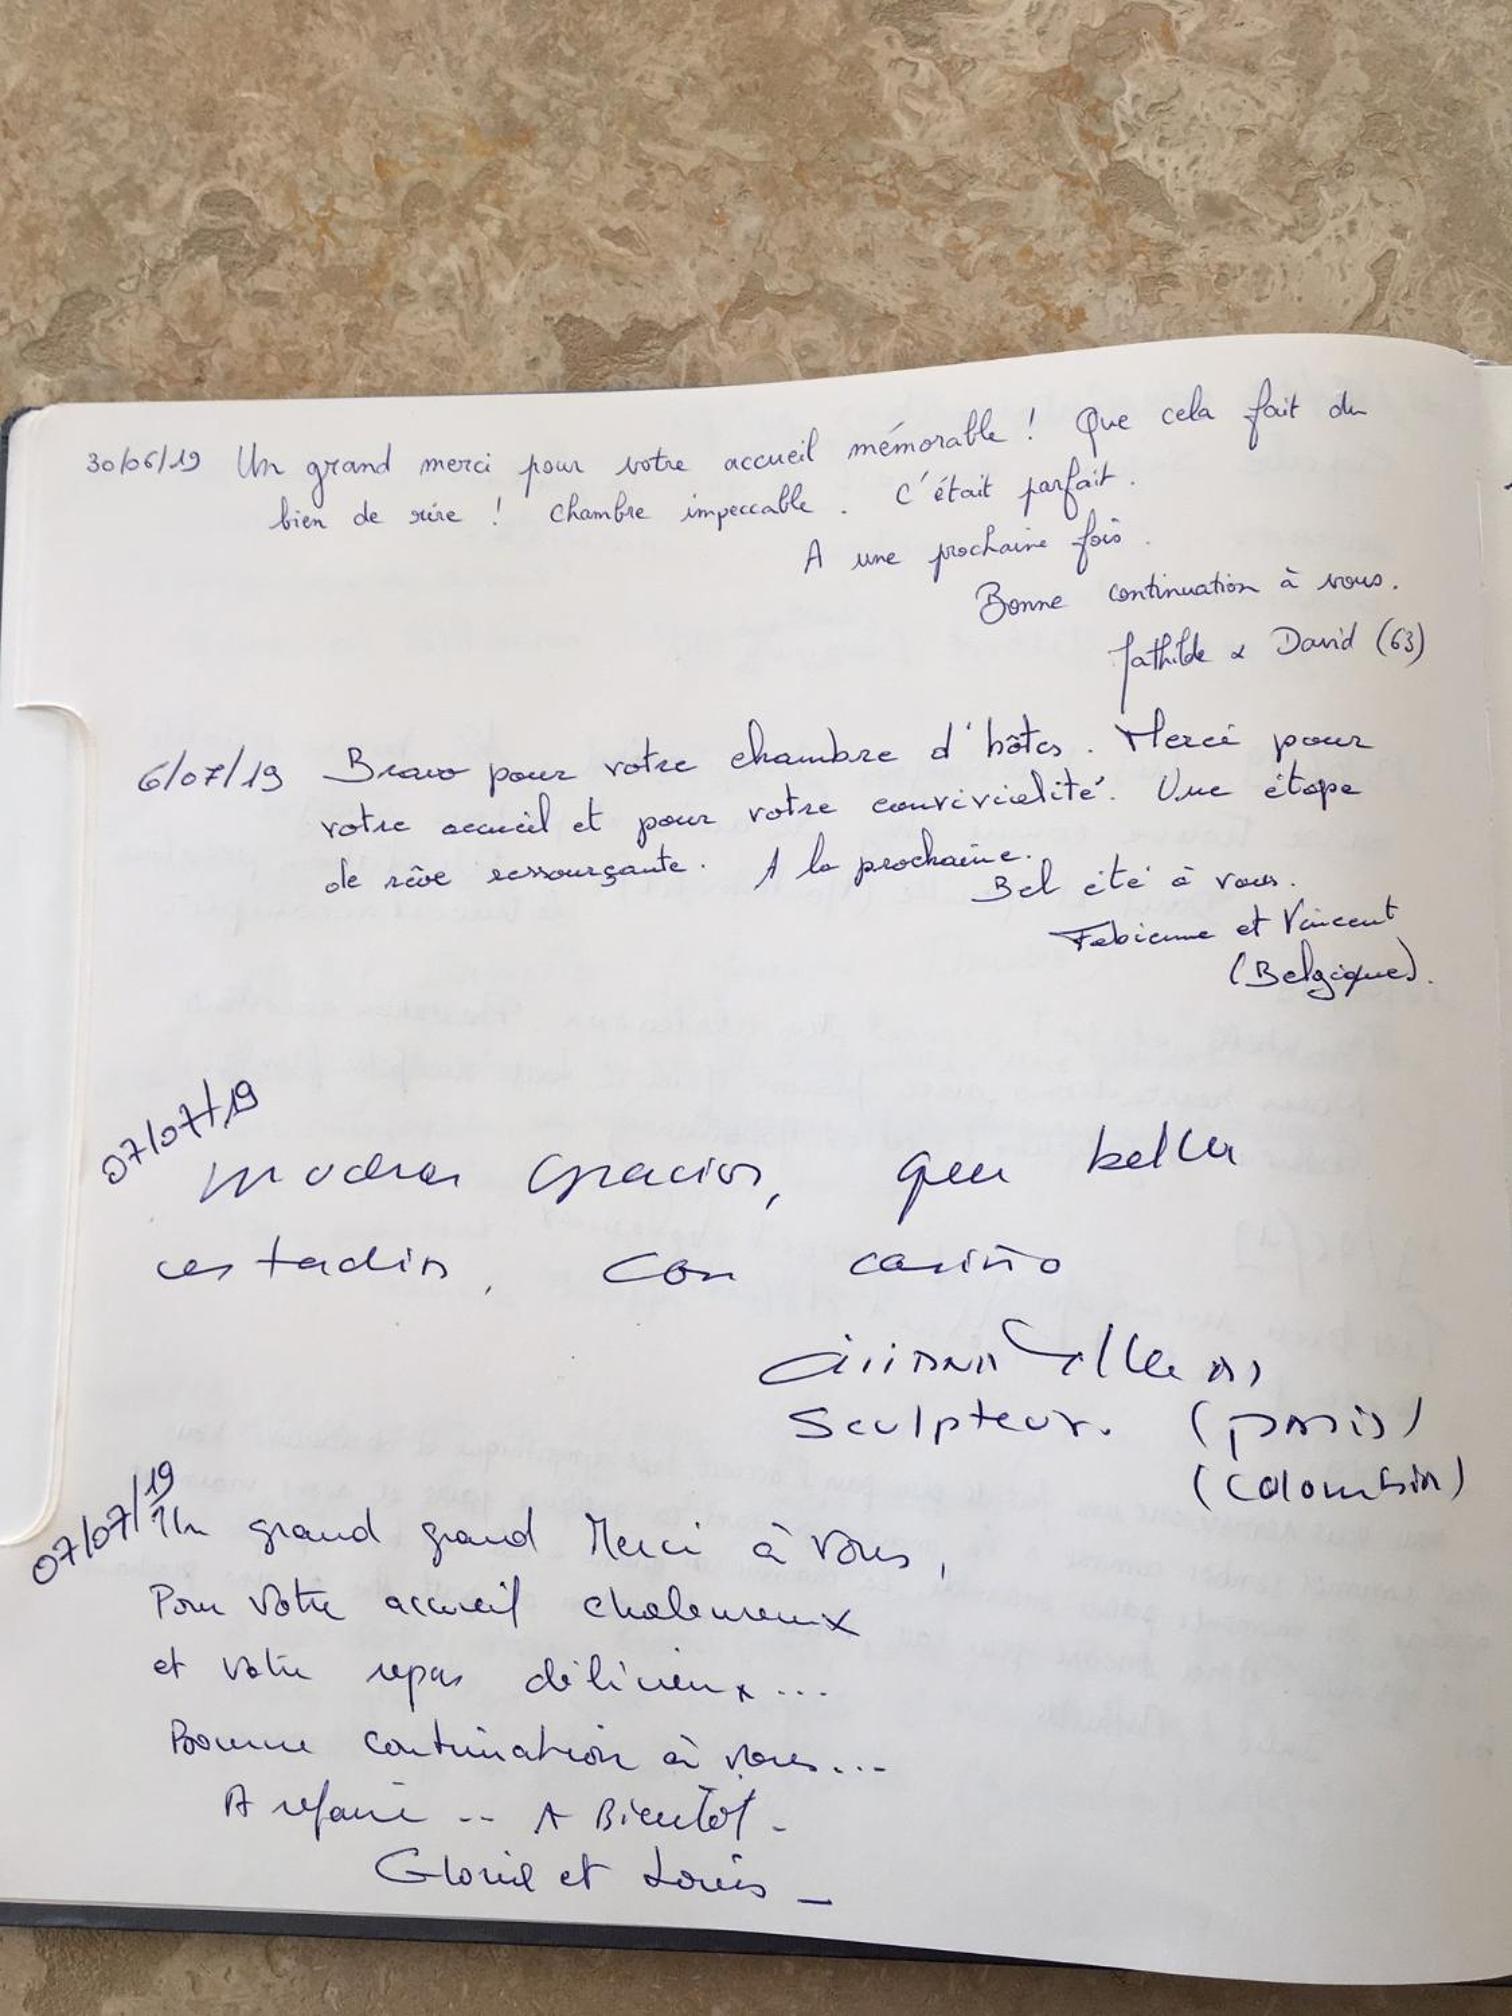 30/06/19 Un grand merci pour votre accueil mémorable ! Que cela fait du
bien de rire ! Chambre impeccable. C'était parfait.
A une prochaine fois.
Bonne continuation à vous.
Mathilde & David (63)
6/07/19 Bravo pour votre chambre d'hôtes. Merci pour
votre accueil et pour votre convivialité. Une étape
de rêve ressourçante. A la prochaine.
Bel été à vous.
Fabienne et Vincent
(Belgique).
07/07/19
muchas gracias, que bella
estadia, con cariño
Sculpteur. (paris)
(Colombia)
07/07/19
Un grand grand Merci à vous,
Pour votre accueil chaleureux
et votre repas délicieux...
Bonne continuation à vous...
A refaire -- A Bientôt -
et Louis -